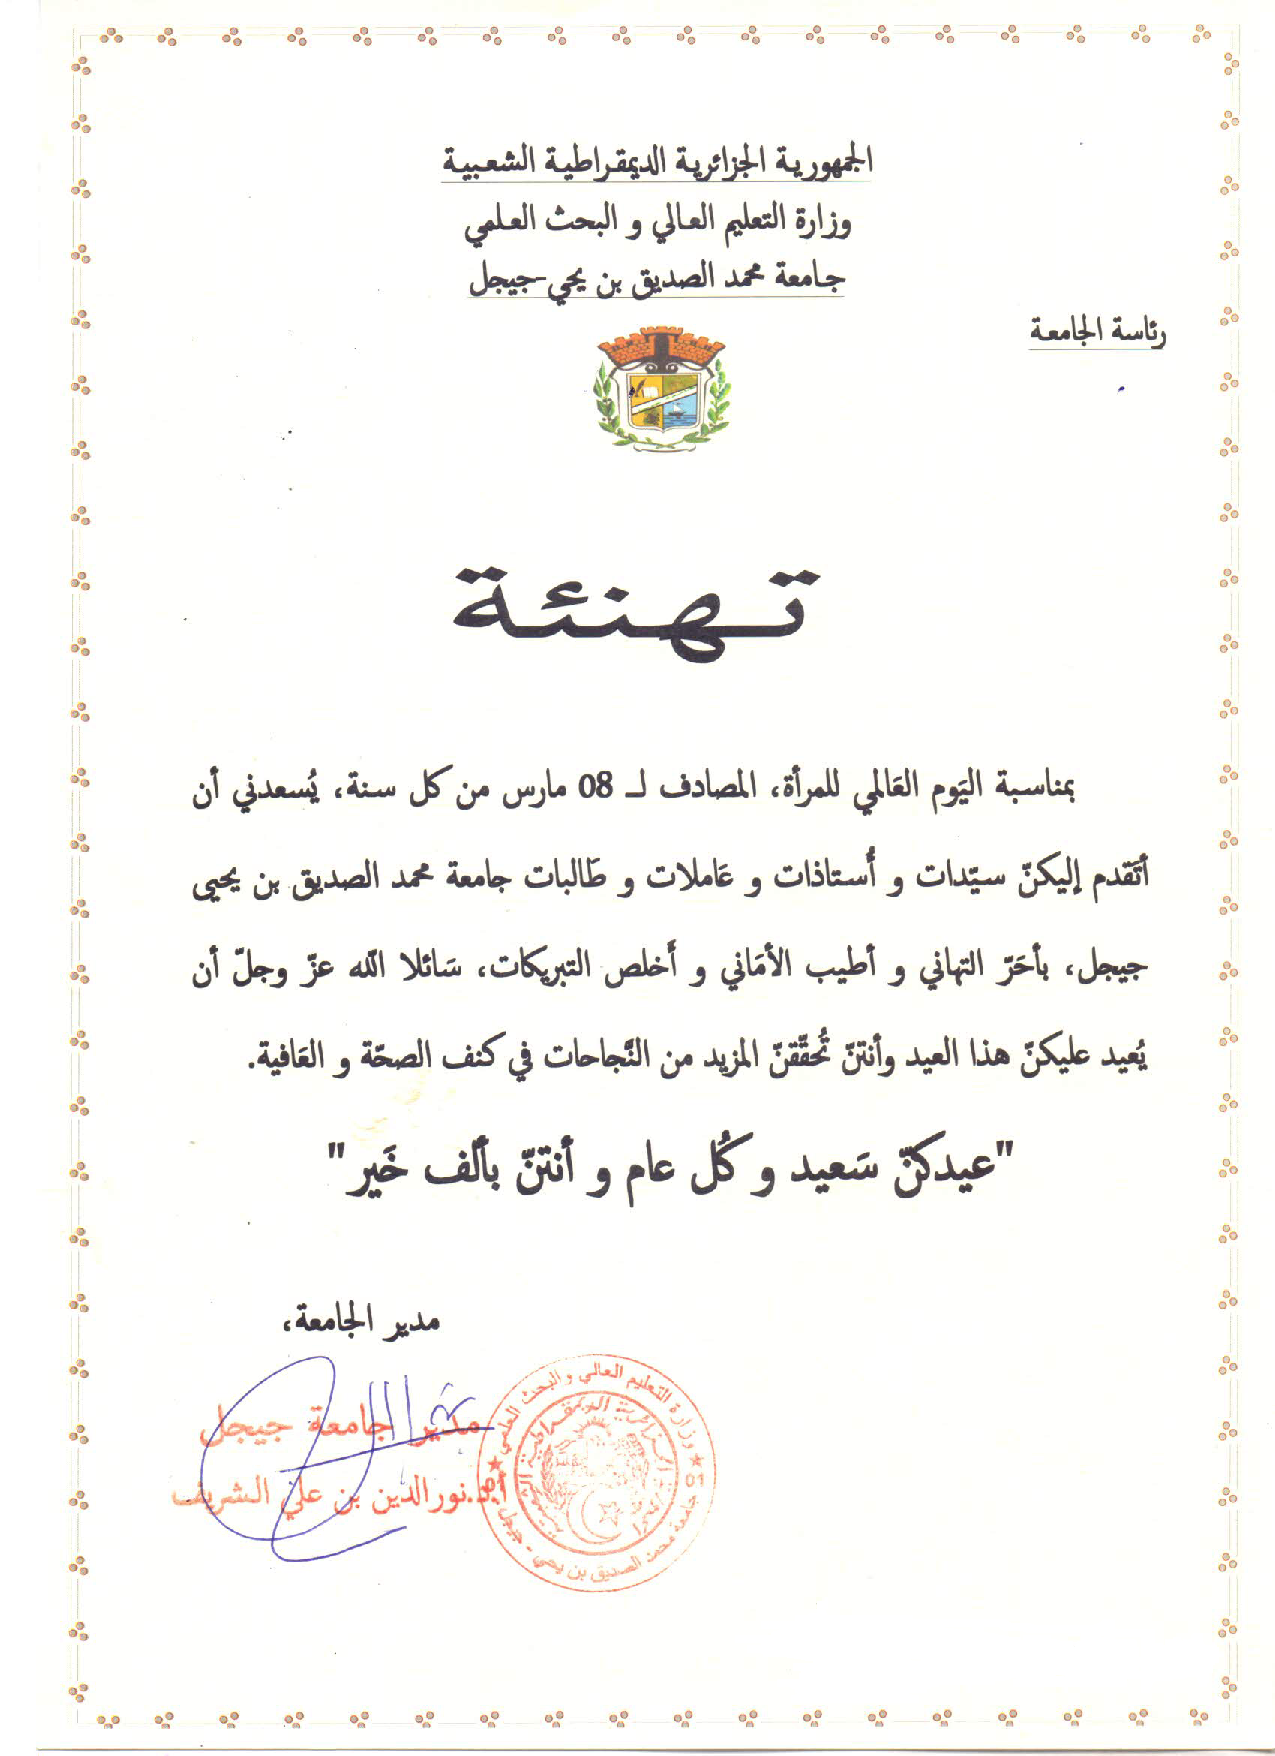 الجمهورية الجزائرية الديمقراطية الشعبية
وزارة التعليم العالي و البحث العلمي
جامعة محمد الصديق بن يحي-جيجل
رئاسة الجامعة
تهنئة
بمناسبة اليَوم العَالمي للمرأة، المصادف لـ 08 مارس من كل سنة، يُسعدني أن
أتَقدم إليكنّ سيّدات و أُستاذات و عَاملات و طَالبات جامعة محمد الصديق بن يحيى
جيجل، بأحَرّ التهاني و أطيب الأمَاني و أَخلص التبريكات، سَائلا الله عزّ وجلّ أن
يُعيد عليكنّ هذا العيد وأنتنّ تُحقّقنّ المزيد من النَّجاحات في كنف الصحّة و العَافية.
"عيدكنّ سَعيد و كُل عام و أنتنّ بألف خَير"
مدير الجامعة،
مدير الجامعة جيجل
أ.د.نور الدين بن علي الشريف
وزارة التعليم العالي و البحث العلمي
جامعة محمد الصديق بن يحي - جيجل
01